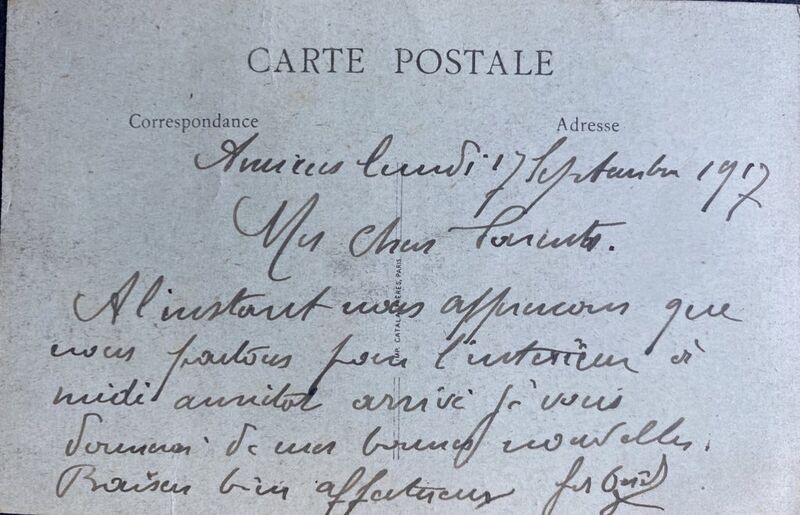 CARTE POSTALE
Correspondance
Adresse
Amiens lundi 17 Septembre 1917
Mes chers Parents.
A l'instant nous apprenons que
nous partons pour l'interieur à
midi aussitôt arrivé je vous
donnerai de mes bonnes nouvelles.
Baisers bien affectueux
IMP. CATALA FRÈRES, PARIS